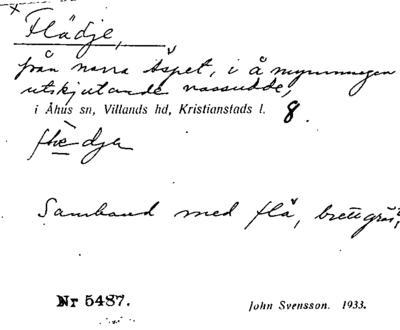 Flädje,
från norra Äspet, i åmynningen
utskjutande vassudde,
i Åhus sn, Villands hd, Kristianstads l. 8.
Samband med flå, brett gräs,
Nr 5487.
John Svensson. 1933.